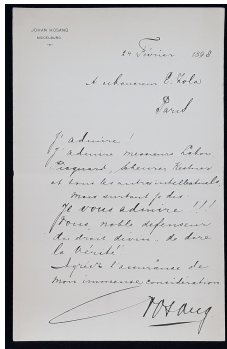 JOHAN HOSANG
MIDDELBURG
24 Février 1898
A monsieur E. Zola
Paris
J'admire!
J'admire messieurs Labori
Picquard, Scheurer Kestner
et tous les autres intellectuels,
mais surtout je dis
Je vous admire !!!
Vous, noble défenseur
du droit divin de dire
la Vérité
Agréez l'assurance de
mon immense considération
Hosang